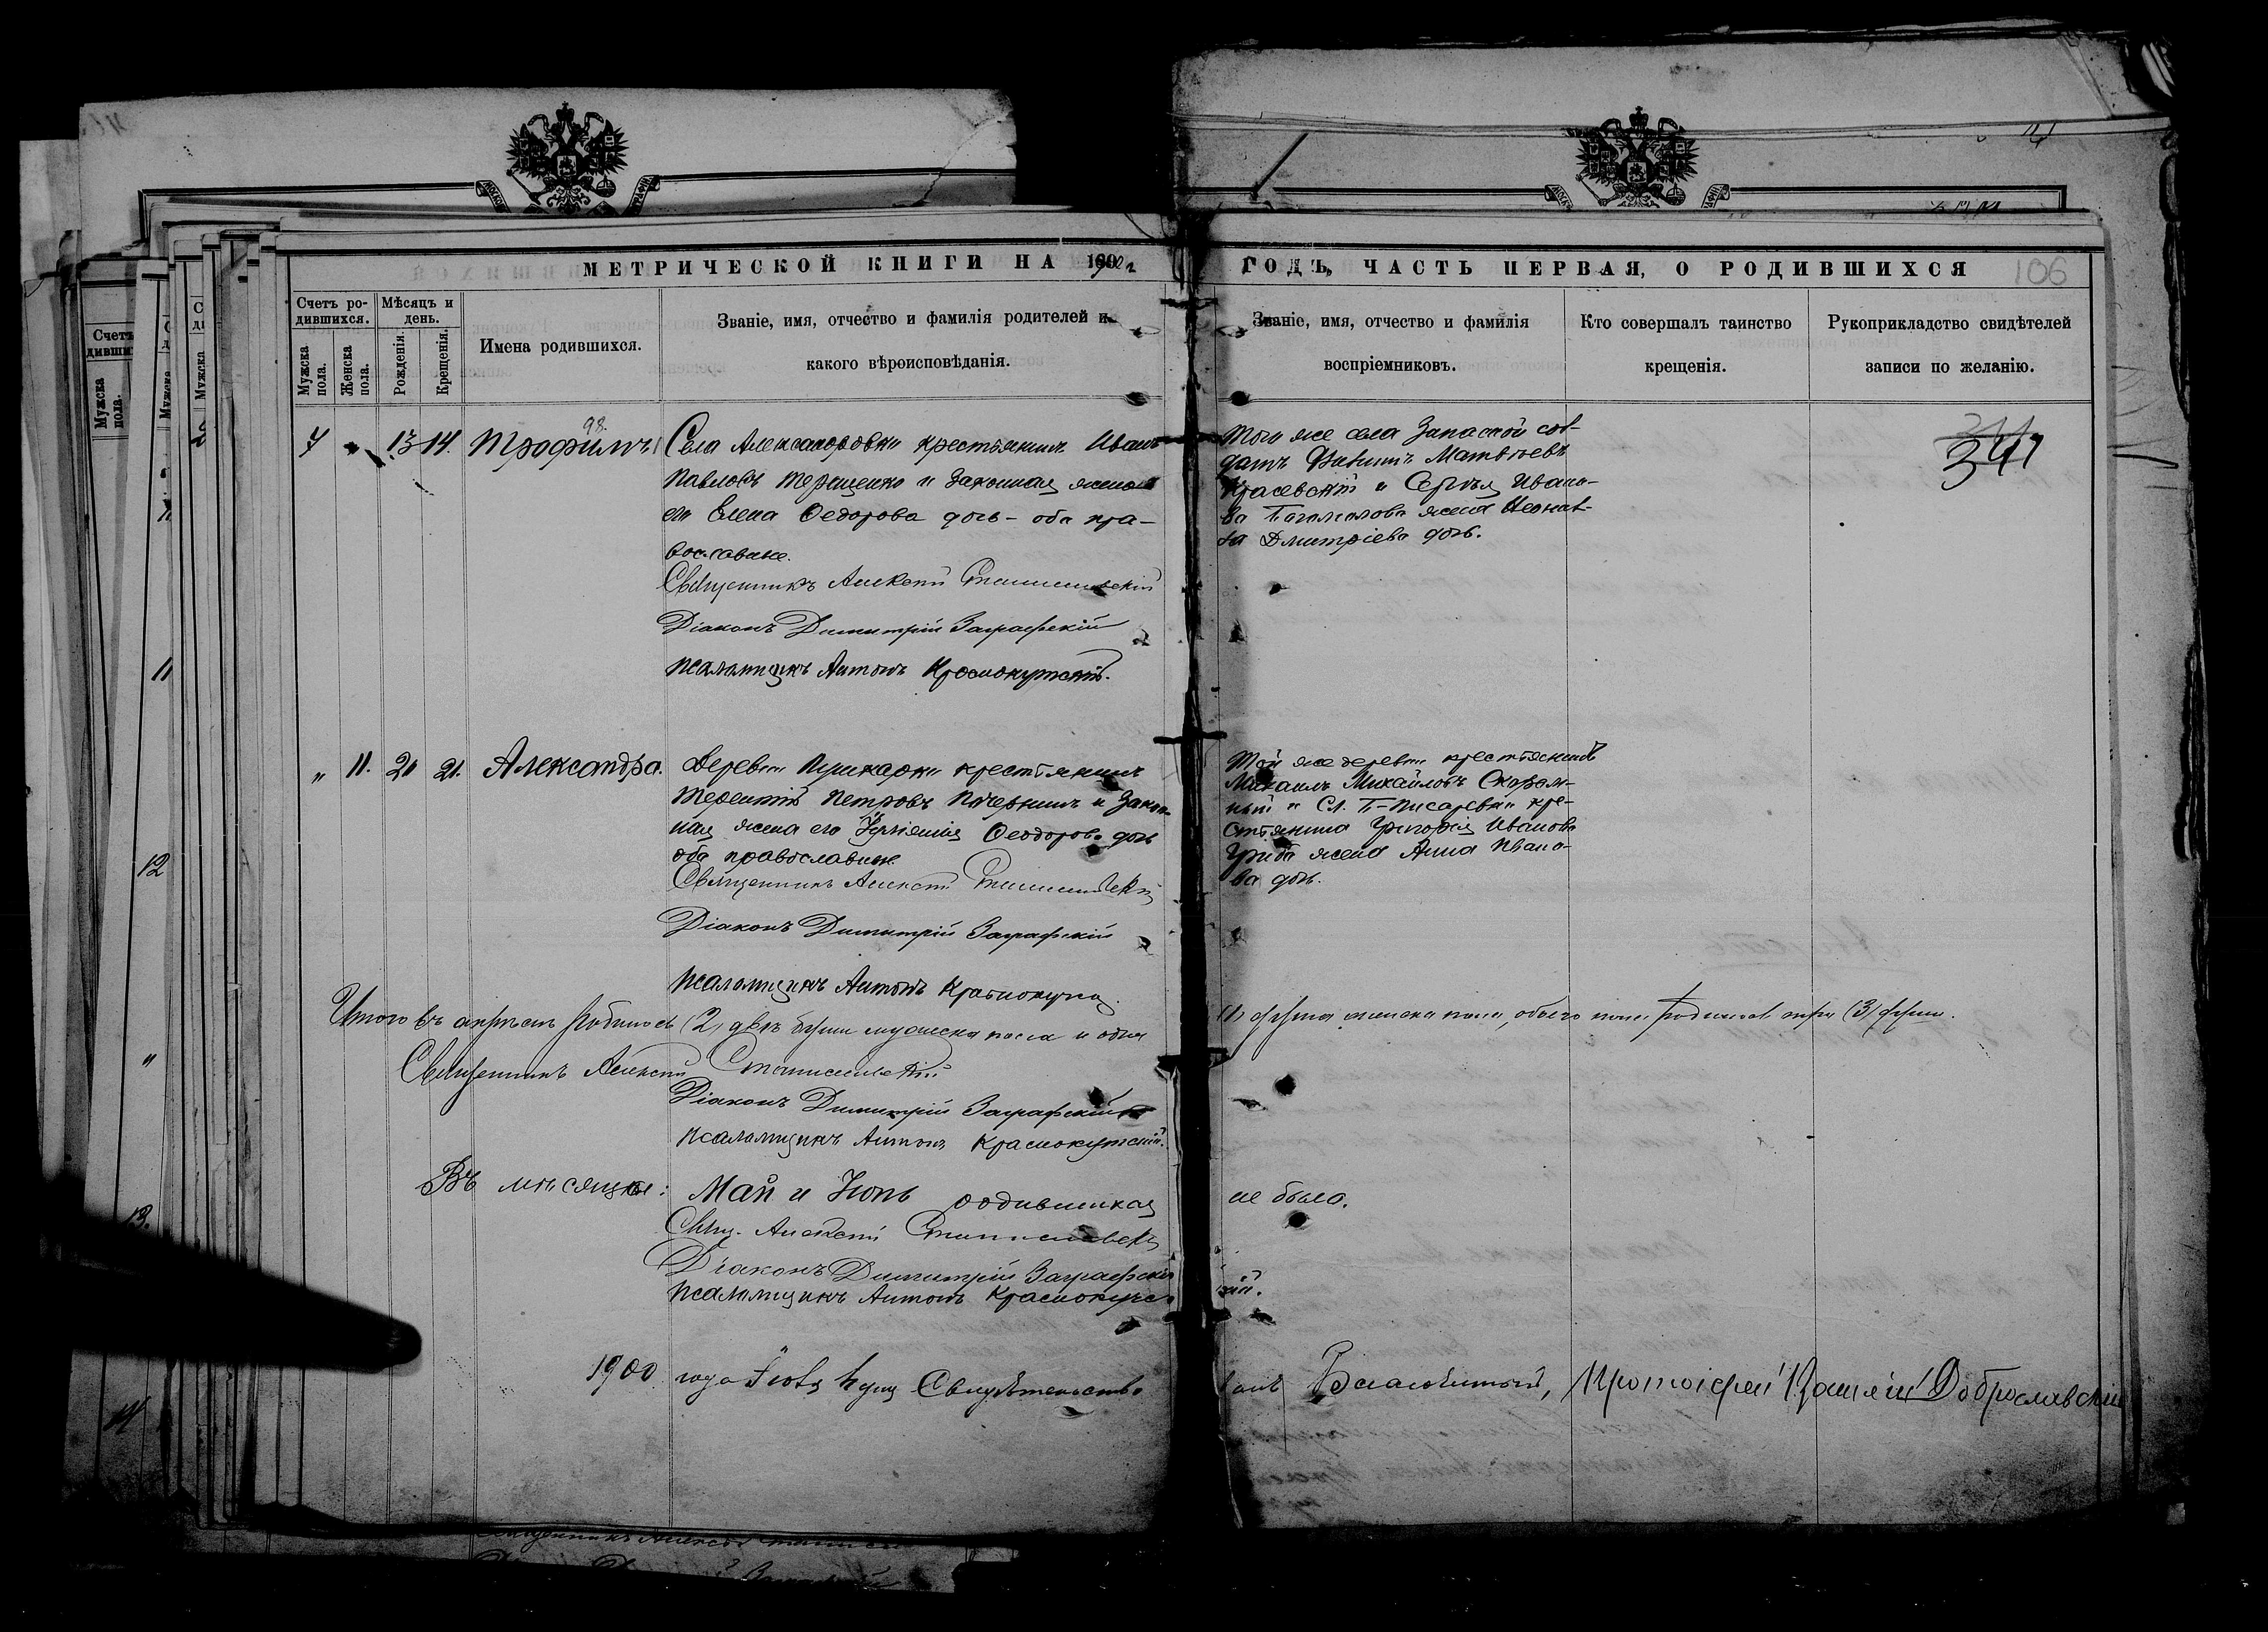 МЕТРИЧЕСКОЙ КНИГИ НА 1900 г.
ГОДЪ, ЧАСТЬ ПЕРВАЯ, О РОДИВШИХСЯ
106
Счетъ ро-
дившихся.
Мужска
пола.
Женска
пола.
Мѣсяцъ и
день.
Рожденія.
Крещенія.
Имена родившихся.
Званіе, имя, отчество и фамилія родителей и
какого вѣроисповѣданія.
Званіе, имя, отчество и фамилія
воспріемниковъ.
Кто совершалъ таинство
крещенія.
Рукоприкладство свидѣтелей
записи по желанію.
7 " 13 14. Трофимъ
98.
Села Александровки крестьянинъ Иванъ
Павловъ Терещенко и законная жена
его Елена Федорова дочь - оба пра-
вославные.
Священникъ Алексѣй Станиславскій
Діаконъ Димитрій Заграфскій
Псаломщикъ Антонъ Краснокутскій.
Того же села запасной сол-
датъ Матвѣевъ
Красевскій и Ивано-
ва жена
Дмитріева дочь.
341
" 11. 20 21. Александра.
Деревни Пушкарки крестьянинъ
Терентій Петровъ и закон-
ная жена его Феодорова дочь
оба православные
Священникъ Алексѣй Станиславскій
Діаконъ Димитрій Заграфскій
Псаломщикъ Антонъ Краснокутск
Той же деревни крестьянинъ
Михаилъ Михайловъ
и Сл. Б-Писаревки кре-
стьянина Григорія Иванова
Гриба жена Анна Ивано-
ва дочь.
Итого въ апрѣлѣ родилось (2) двѣ души мужска пола и одна
(1) душа женска пола, обоего пола родилось три (3) души.
Священникъ Алексѣй Станиславскій
Діаконъ Димитрій Заграфскій
Псаломщикъ Антонъ Краснокутскій.
Въ мѣсяцы: Май и Іюнь родившихся
не было.
Свящ. Алексѣй Станиславскій
Діаконъ Димитрій Заграфскій
Псаломщикъ Антонъ Краснокутс
кій.
1900 года Іюля дня Свидѣтельство
валъ Благочинный, Протоіерей Доброславскій
12